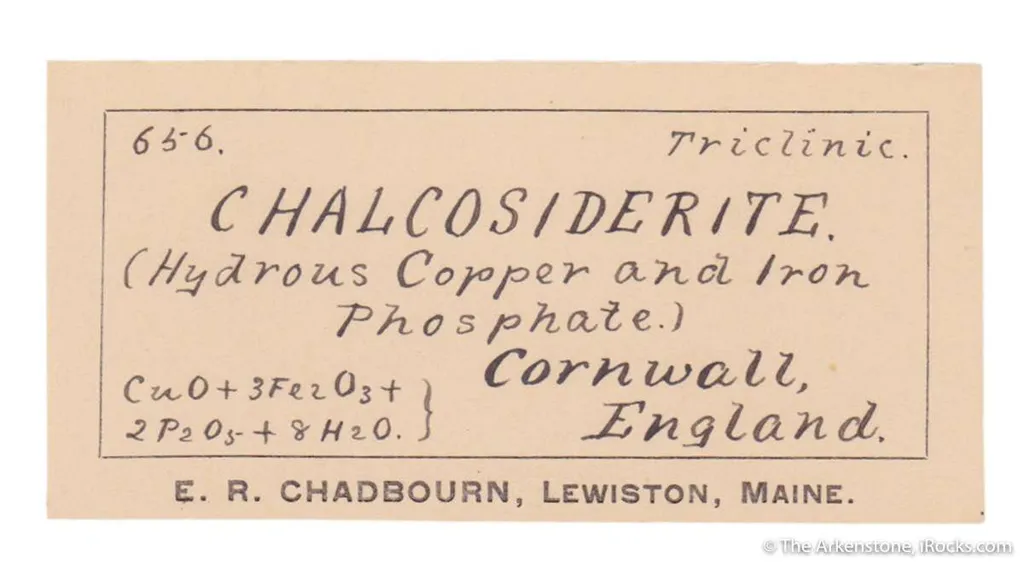 656. Triclinic.
CHALCOSIDERITE.
(Hydrous Copper and Iron
Phosphate.)
CuO + 3Fe2O3 +
2P2O5 + 8H2O. }
Cornwall,
England.
E. R. CHADBOURN, LEWISTON, MAINE.
© The Arkenstone, iRocks.com